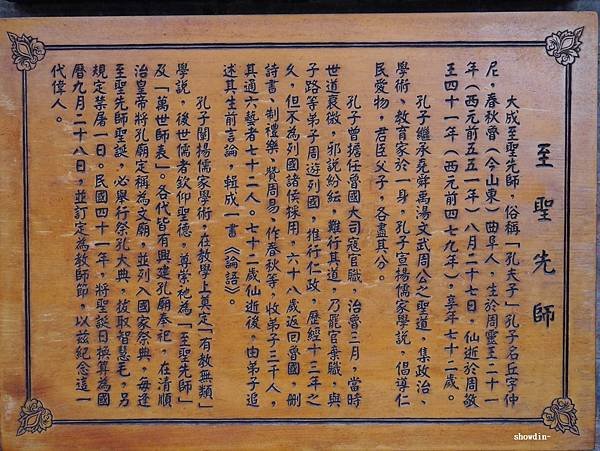 至聖先師
大成至聖先師，俗稱「孔夫子」孔子名丘字仲
尼，春秋魯（今山東）曲阜人，生於周靈王二十一
年（西元前五五一年）八月二十七日，仙逝於周敬
王四十一年（西元前四七九年），享年七十二歲。
孔子繼承堯舜禹湯文武周公之聖道，集政治、
學術、教育家於一身，孔子宣揚儒家學說，倡導仁
民愛物，君臣父子，各盡其分。
孔子曾擔任魯國大司寇官職，治魯三月，當時
世道衰微，邪說紛紜，難行其道，乃罷官棄職，與
子路等弟子周遊列國，推行仁政，歷經十三年之
久，但不為列國諸侯採用，六十八歲返回魯國，刪
詩書、制禮樂、贊周易、作春秋等，收弟子三千人，
其通六藝者七十二人。七十二歲仙逝後，由弟子追
述其生前言論，輯成一書《論語》。
孔子闡揚儒家學術，在教學上奠定「有教無類」
學說，後世儒者欽仰聖德，尊崇祂為「至聖先師」
及「萬世師表」。各代皆有興建孔廟奉祀，在清順
治皇帝將孔廟定稱為文廟，並列入國家祭典，每逢
至聖先師聖誕，必舉行祭孔大典，拔取智慧毛，另
規定禁屠一日。民國四十一年，將聖誕日換算為國
曆九月二十八日，並訂定為教師節，以茲紀念這一
代偉人。
showdin~